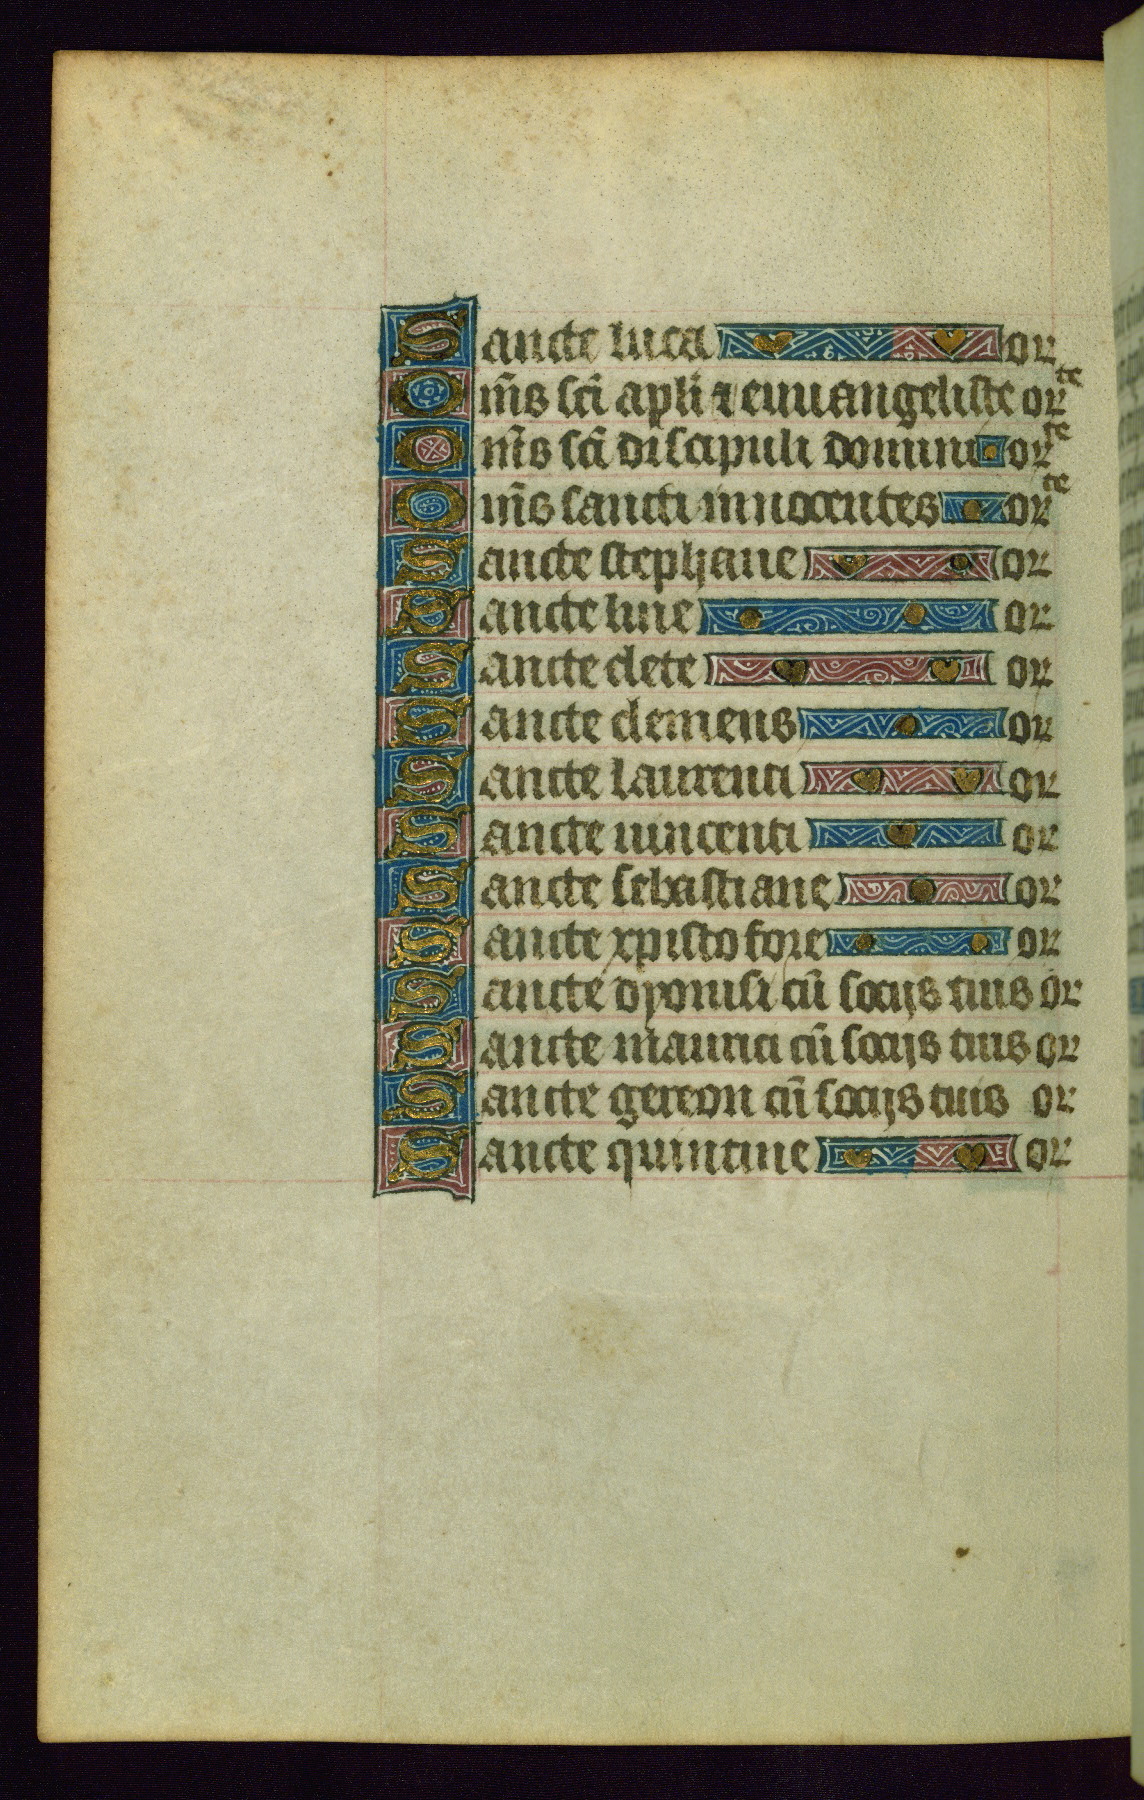 Sancte luca or
Om̄s sc̄i apl̄i ⁊ euuangeliste orte
Om̄s sc̄i discipuli domini orte
Om̄s sancti innocentes orte
Sancte stephane or
Sancte line or
Sancte clete or
Sancte clemens or
Sancte laurenti or
Sancte uincenti or
Sancte sebastiane or
Sancte xpistofore or
Sancte dyonisi cū socijs tuis or
Sancte maurici cū socijs tuis or
Sancte gereon cū socijs tuis or
Sancte quintine or